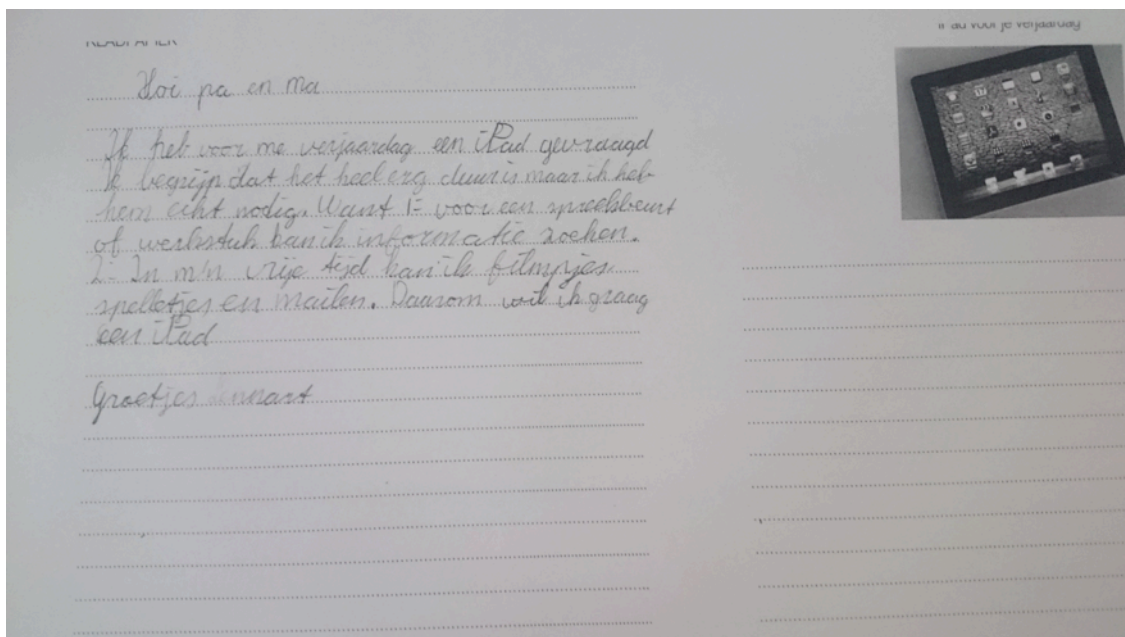 KLADPAPIER
iPad voor je verjaardag
Hoi pa en ma
Ik heb voor me verjaardag een iPad gevraagd
Ik begrijp dat het heel erg duur is maar ik heb
hem echt nodig. Want 1- voor een spreekbeurt
of werkstuk kan ik informatie zoeken.
2- In m'n vrije tijd kan ik filmpjes
spelletjes en mailen. Daarom wil ik graag
een iPad
Groetjes Lennart